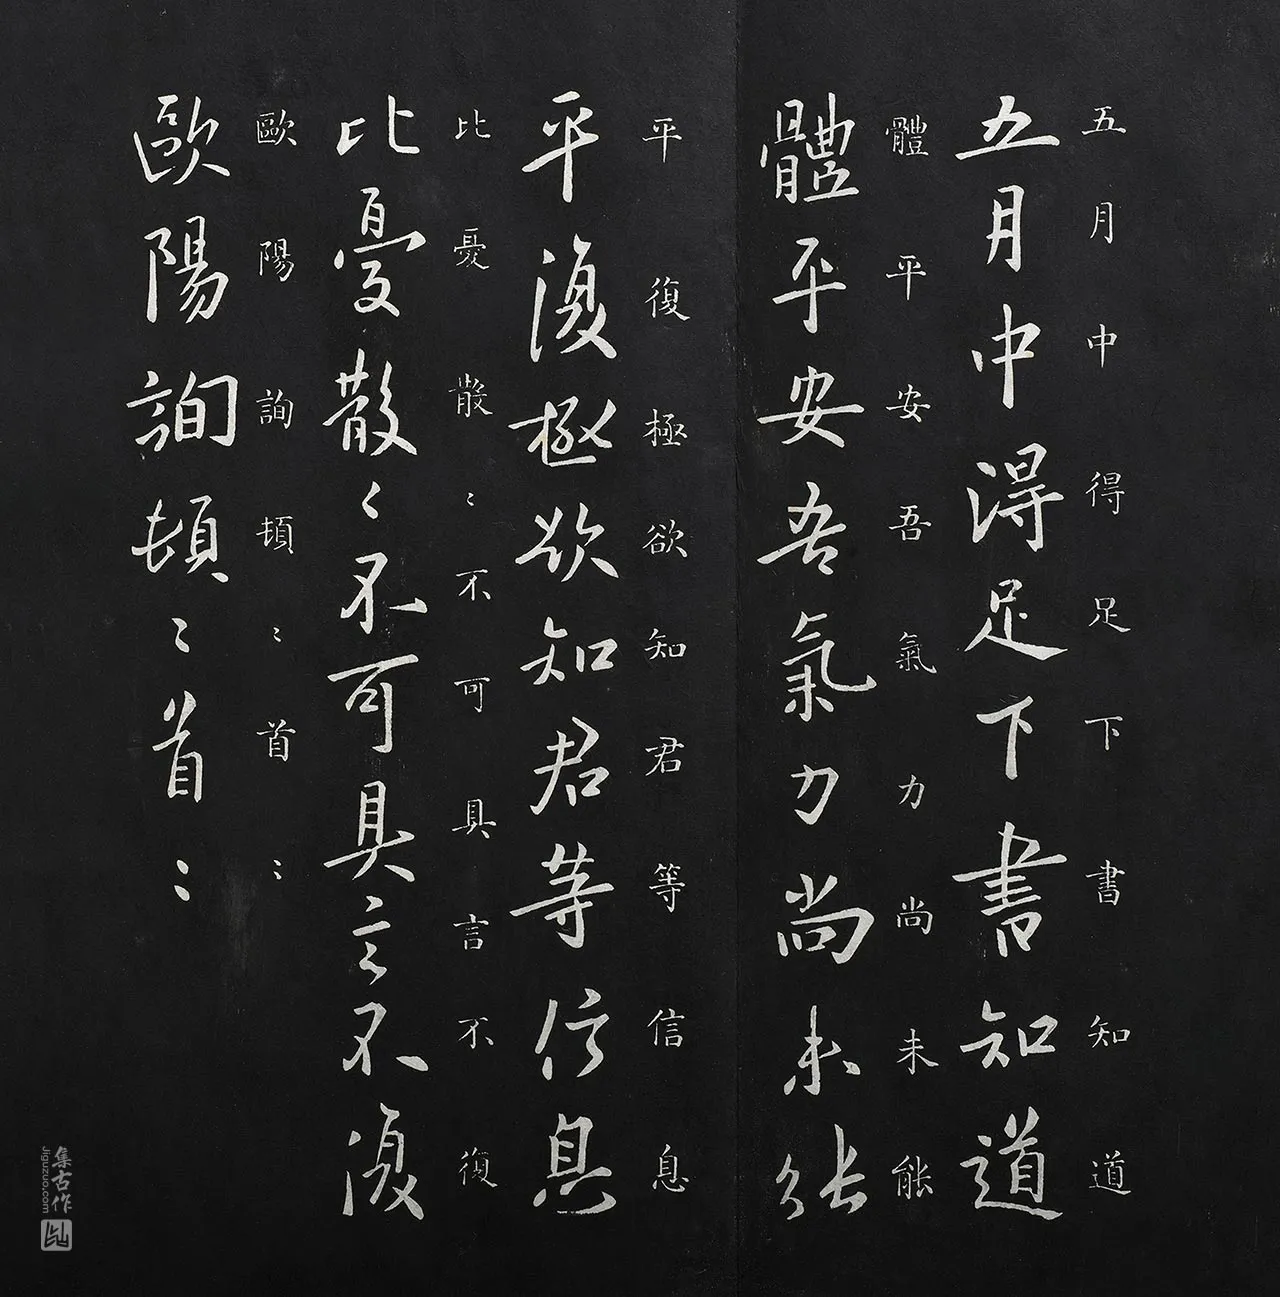 五月中得足下書知道
五月中得足下書知道
體平安吾氣力尚未能
體平安吾氣力尚未能
平復極欲知君等信息
平復極欲知君等信息
比憂散〻不可具言不復
比憂散〻不可具言不復
歐陽詢頓〻首〻
歐陽詢頓〻首〻
集古作
jiguzuo.com